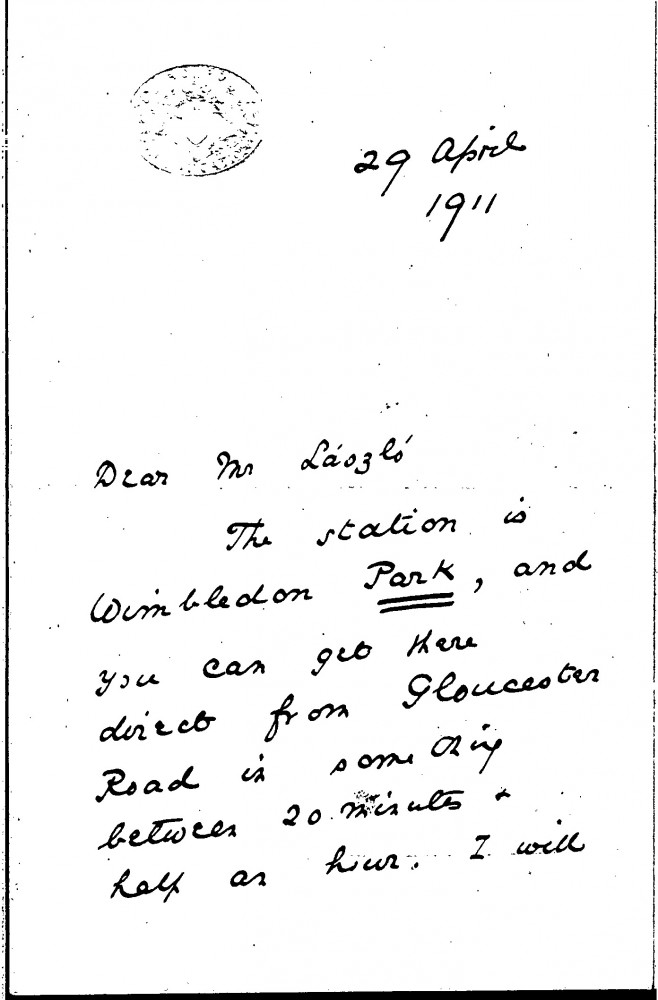 29 April
1911
Dear Mr László
The station is
Wimbledon Park, and
you can get there
direct from Gloucester
Road in something
between 20 minutes &
half an hour. I will